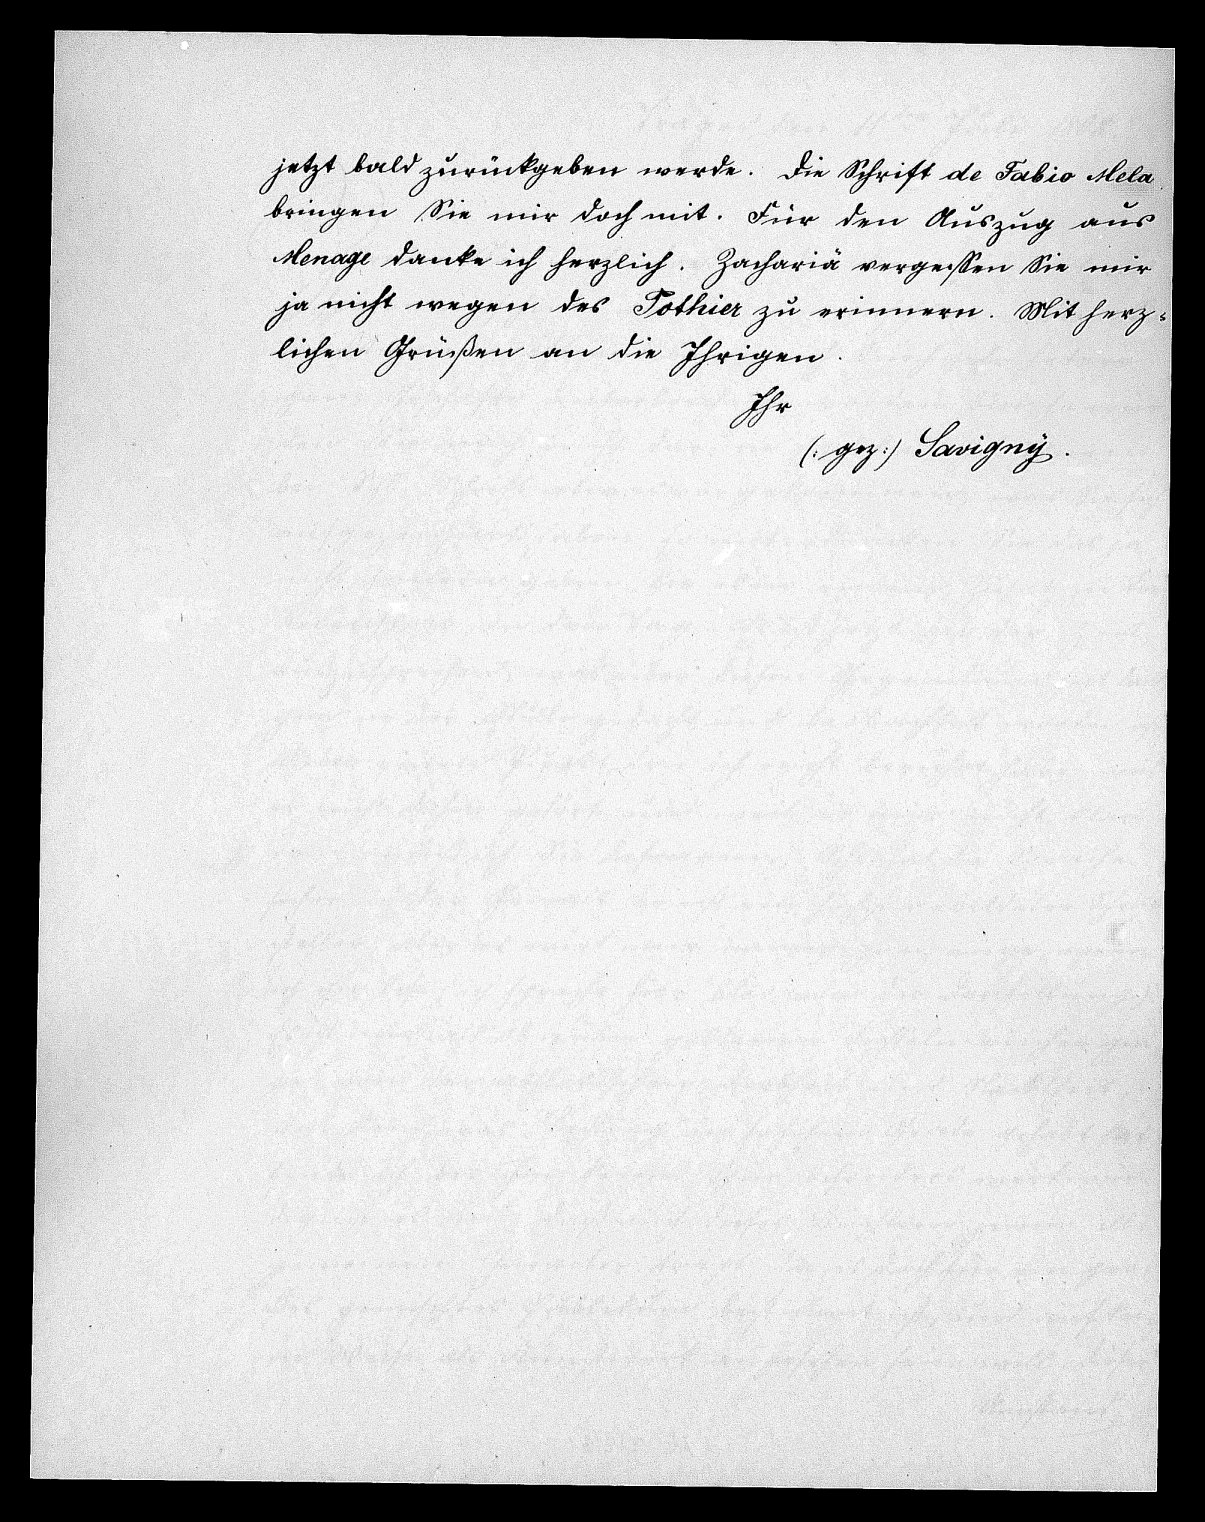 jetzt bald zurückgeben werde. Die Schrift de Fabio Mela
bringen Sie mir doch mit. Für den Auszug aus
Menage danke ich herzlich. Zachariä vergessen Sie mir
ja nicht wegen des Pothier zu erinnern. Mit herz=
lichen Grüßen an die Ihrigen.
Ihr
(: gez:) Savigny.